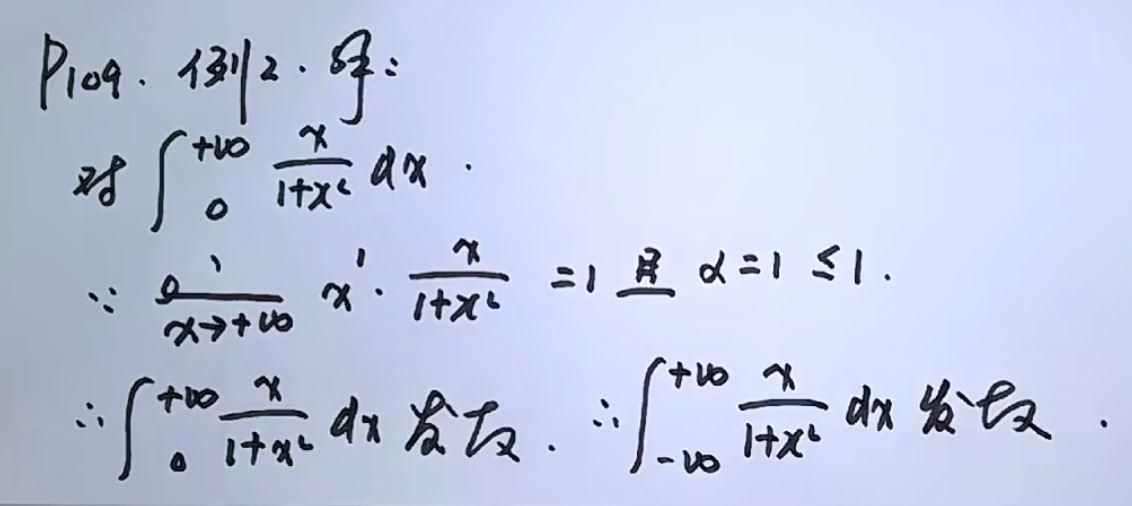 P109. 例2. 解:
对 ∫_0^{+∞} \frac{x}{1+x²} dx.
∵ lim_{x→+∞} x^1 · \frac{x}{1+x²} = 1 且 α = 1 ≤ 1.
∴ ∫_0^{+∞} \frac{x}{1+x²} dx 发散. ∴ ∫_{-∞}^{+∞} \frac{x}{1+x²} dx 发散.